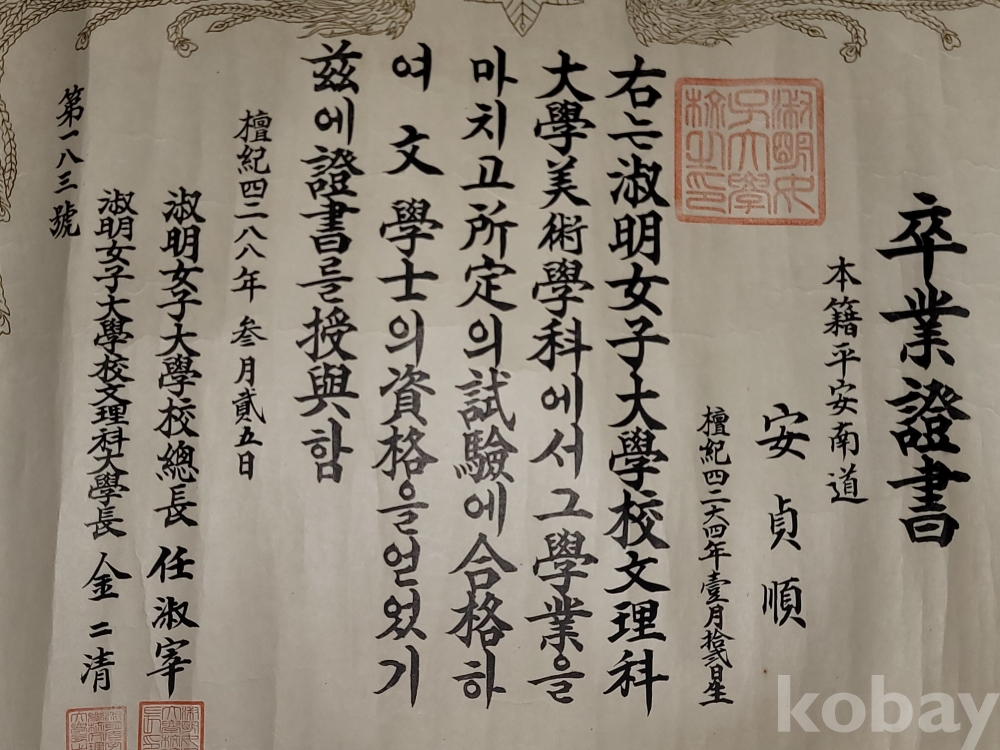 卒業證書
本籍平安南道
安貞順
檀紀四二六四年壹月拾貳日生
淑明女子大學校之印
右는淑明女子大學校文理科
大學美術學科에서그學業을
마치고所定의試驗에合格하
여文學士의資格을얻었기
玆에證書를授與함
檀紀四二八八年叁月貳五日
淑明女子大學校總長 任淑宰
淑明女子大學校文理科大學長 金二清
第一八三號
kobay